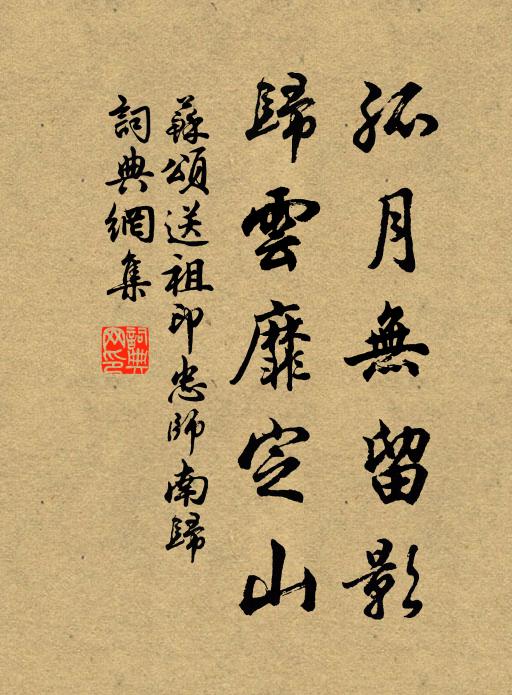 孤月無留影
歸雲靡定山
蘇頌送祖印忠師南歸
詞典網集
詞典
网印